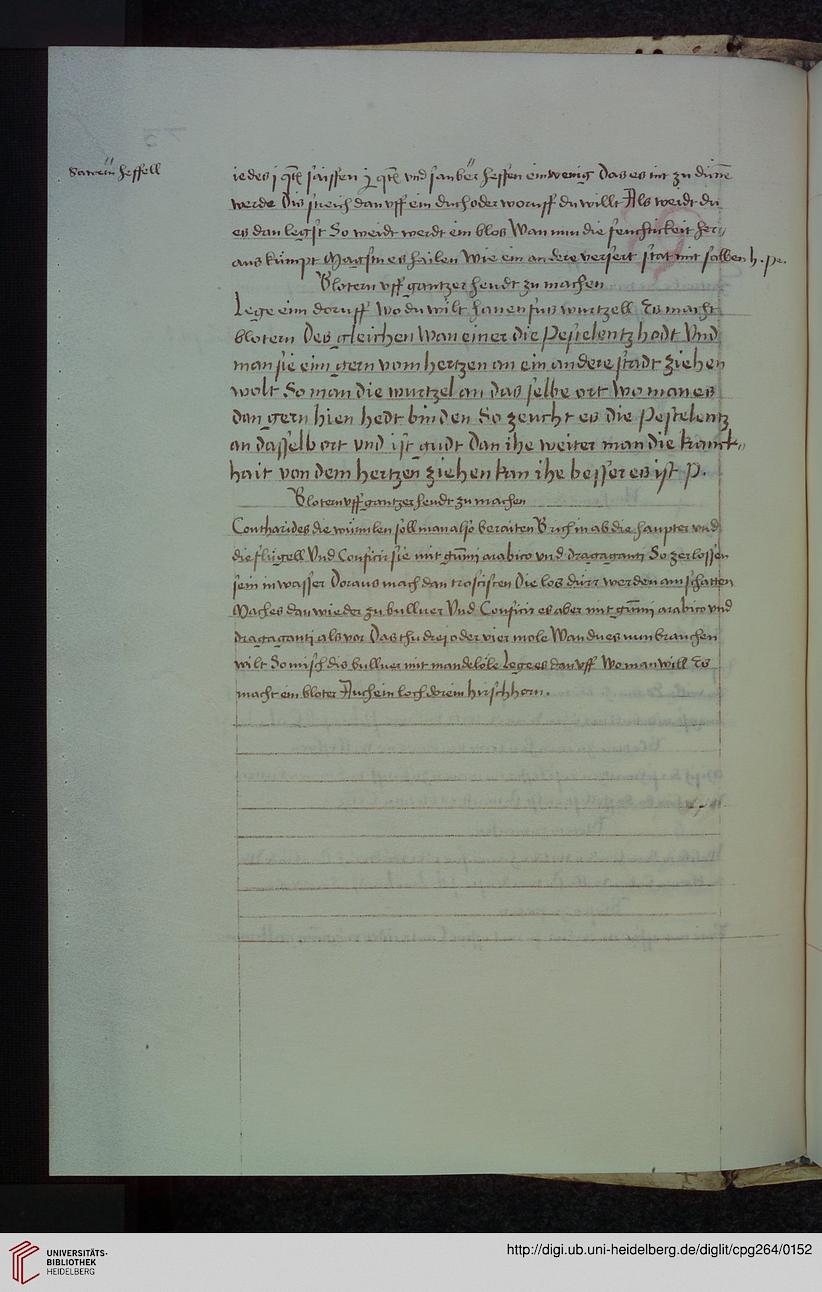 Sawern heffell
iedes j qtͤ saiffen j qtͤ vnd sauber heffen ein wenig Das es nit zu dinne
werde Dis streich dan vff ein duch oder woruff du willt Als weidt du
es dan legst So weidt werdt ein blos Wan nun die feuchtickeit her„
aus kumpt Magstu es hailen wie ein andere versert stat mit salben h. pr.
Blotern vff gantzer heudt zu machen
Lege einn doruff wo du wilt hanenfus wurtzell Es macht
blotern Des gleichen Wan einer die Pestelentz hodt Vnd
man sie einn gern vom hertzen an ein andere stadt ziehen
wolt So man die wurtzel an das selbe ort Wo man es
dan gern hien hedt binden So zeucht es die Pestelentz
an dasselb ort vnd ist gudt Dan ihe weiter man die kranck„
hait von dem hertzen ziehen kan ihe besser es ist P.
Blotern vff gantzer heudt zu machen
Contharides die würmlen soll man also beraiten Brich in ab die haupter vnd
die flügell Vnd Conficir sie mit gummj arabico vnd dragaganti So zerlossen
sein in wasser Doraus mach dan troscisten Die los dürr werden am schatten
Maches dan wieder zu bulluer Vnd Conficir es aber mit gummj arabico vnd
dragaganti als vor Das thu drei oder vier mole Wan du es nun brauchen
wilt So misch dis bulluer mit mandelöle Lege es dan vff Wo man will Es
macht ein bloter Auch ein loch dorein hirschhorn.
UNIVERSITÄTS-
BIBLIOTHEK
HEIDELBERG
http://digi.ub.uni-heidelberg.de/diglit/cpg264/0152